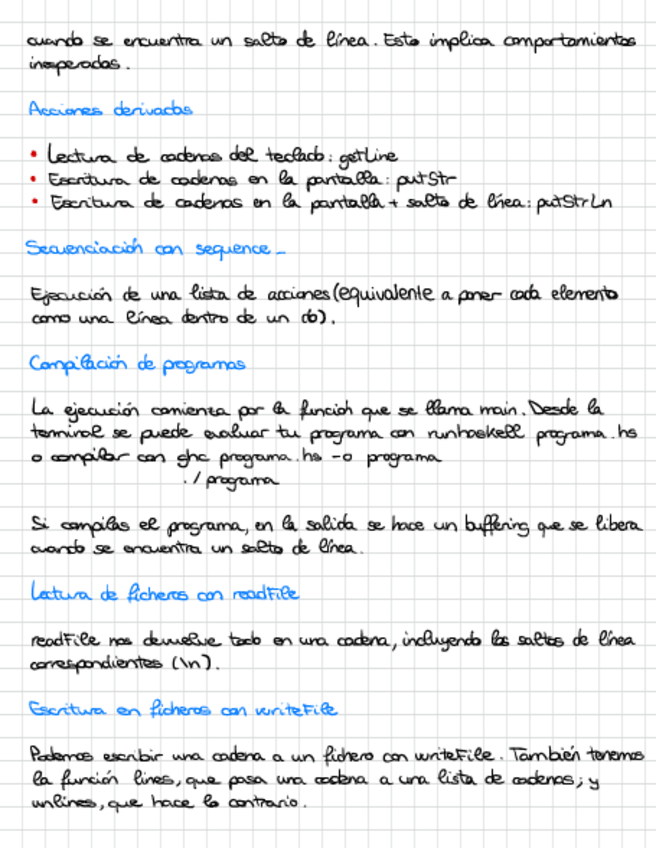 cuando se encuentra un salto de línea. Esto implica comportamientos
inesperados.
Acciones derivadas
• Lectura de cadenas del teclado: getLine
• Escritura de cadenas en la pantalla: putStr
• Escritura de cadenas en la pantalla + salto de línea: putStrLn
Secuenciación con sequence_
Ejecución de una lista de acciones (equivalente a poner cada elemento
como una línea dentro de un do).
Compilación de programas
La ejecución comienza por la función que se llama main. Desde la
terminal se puede evaluar tu programa con runhaskell programa.hs
o compilar con ghc programa.hs -o programa
./programa
Si compilas el programa, en la salida se hace un buffering que se libera
cuando se encuentra un salto de línea.
Lectura de ficheros con readFile
readFile nos devuelve todo en una cadena, incluyendo los saltos de línea
correspondientes (\n).
Escritura en ficheros con writeFile
Podemos escribir una cadena a un fichero con writeFile. También tenemos
la función lines, que pasa una cadena a una lista de cadenas; y
unlines, que hace lo contrario.